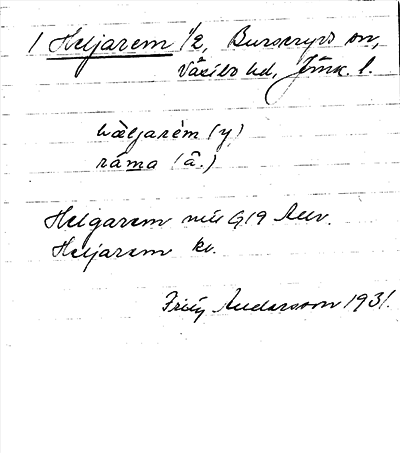 1 Heljarem 1/2, Burseryds sn,
Västbo hd, Jönk. l.
hæljarèm (y)
råma (å.)
Helgarem
Heljarem kv.
Fritz Andersson 1931.